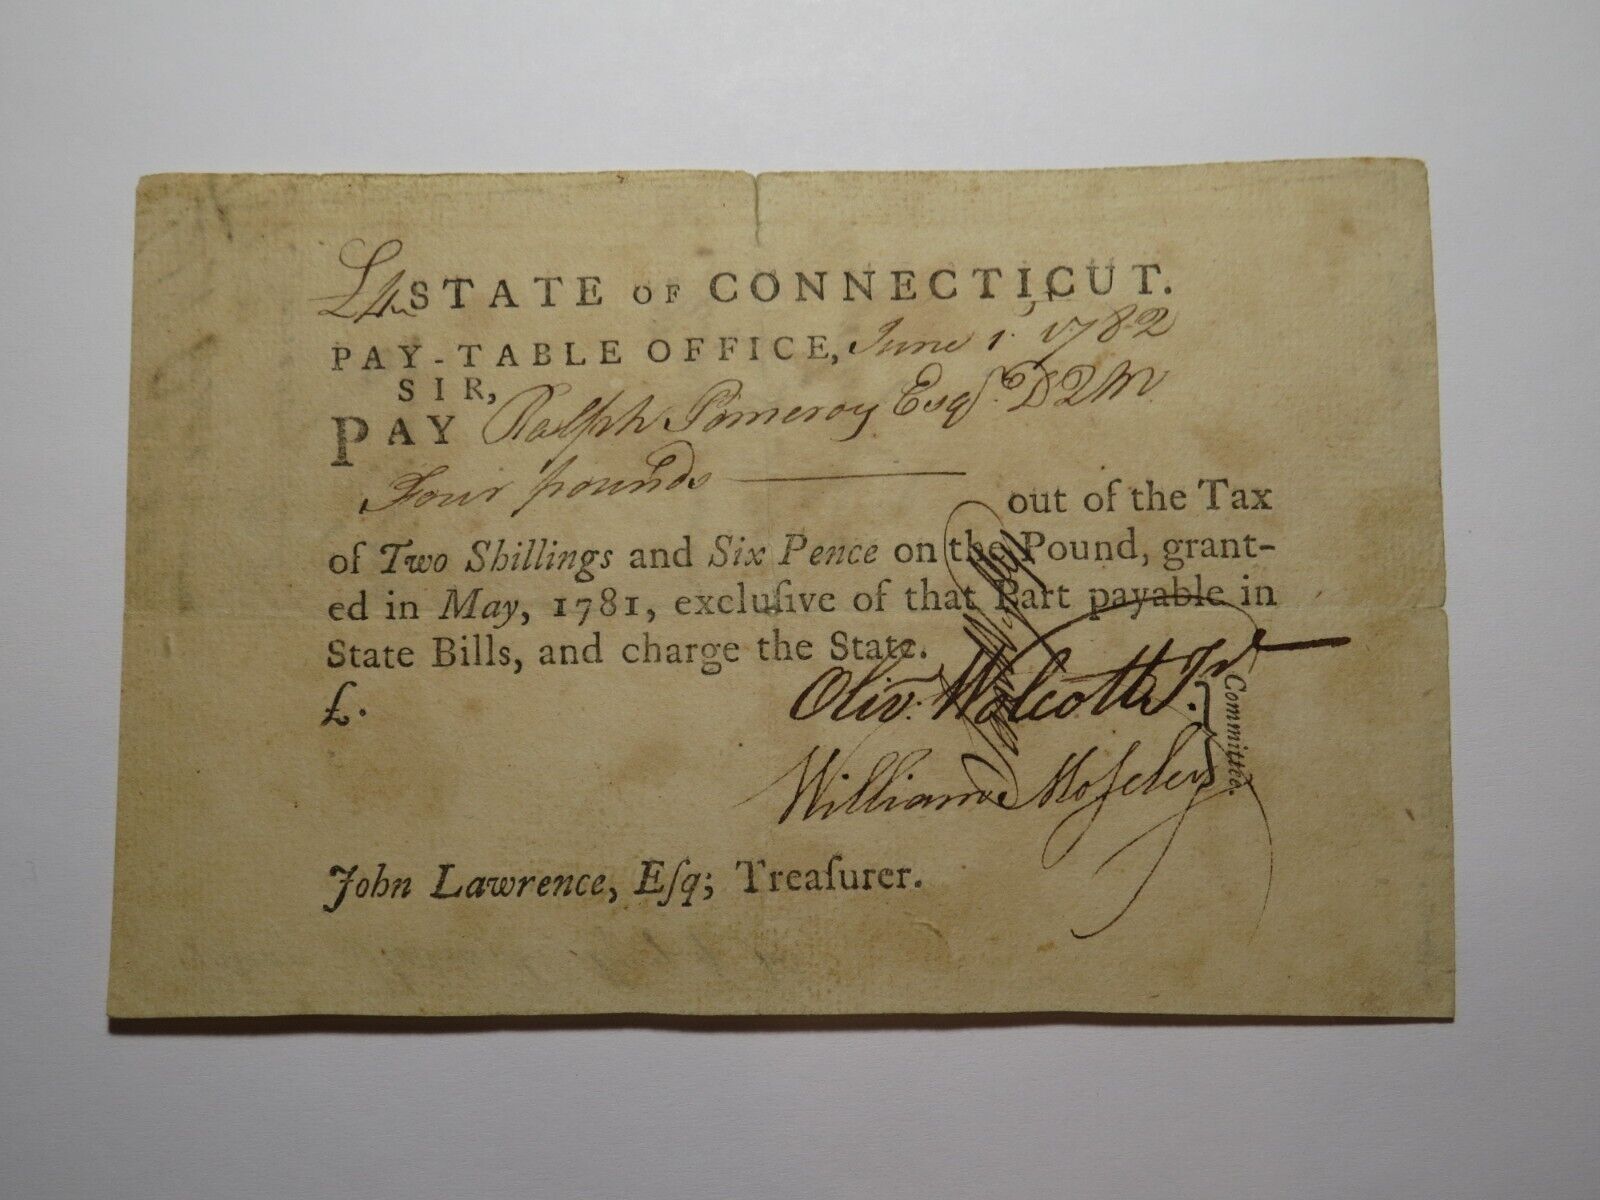 STATE OF CONNECTICUT.
PAY-TABLE OFFICE, June 1st, 1782
SIR,
PAY Ralph Pomeroy Esqr. DQM
Four pounds
out of the Tax
of Two Shillings and Six Pence on the Pound, grant-
ed in May, 1781, excluſive of that Part payable in
State Bills, and charge the State.
£.
Oliv. Wolcott Jr.
William Moseley
Committee.
John Lawrence, Eſq; Treaſurer.